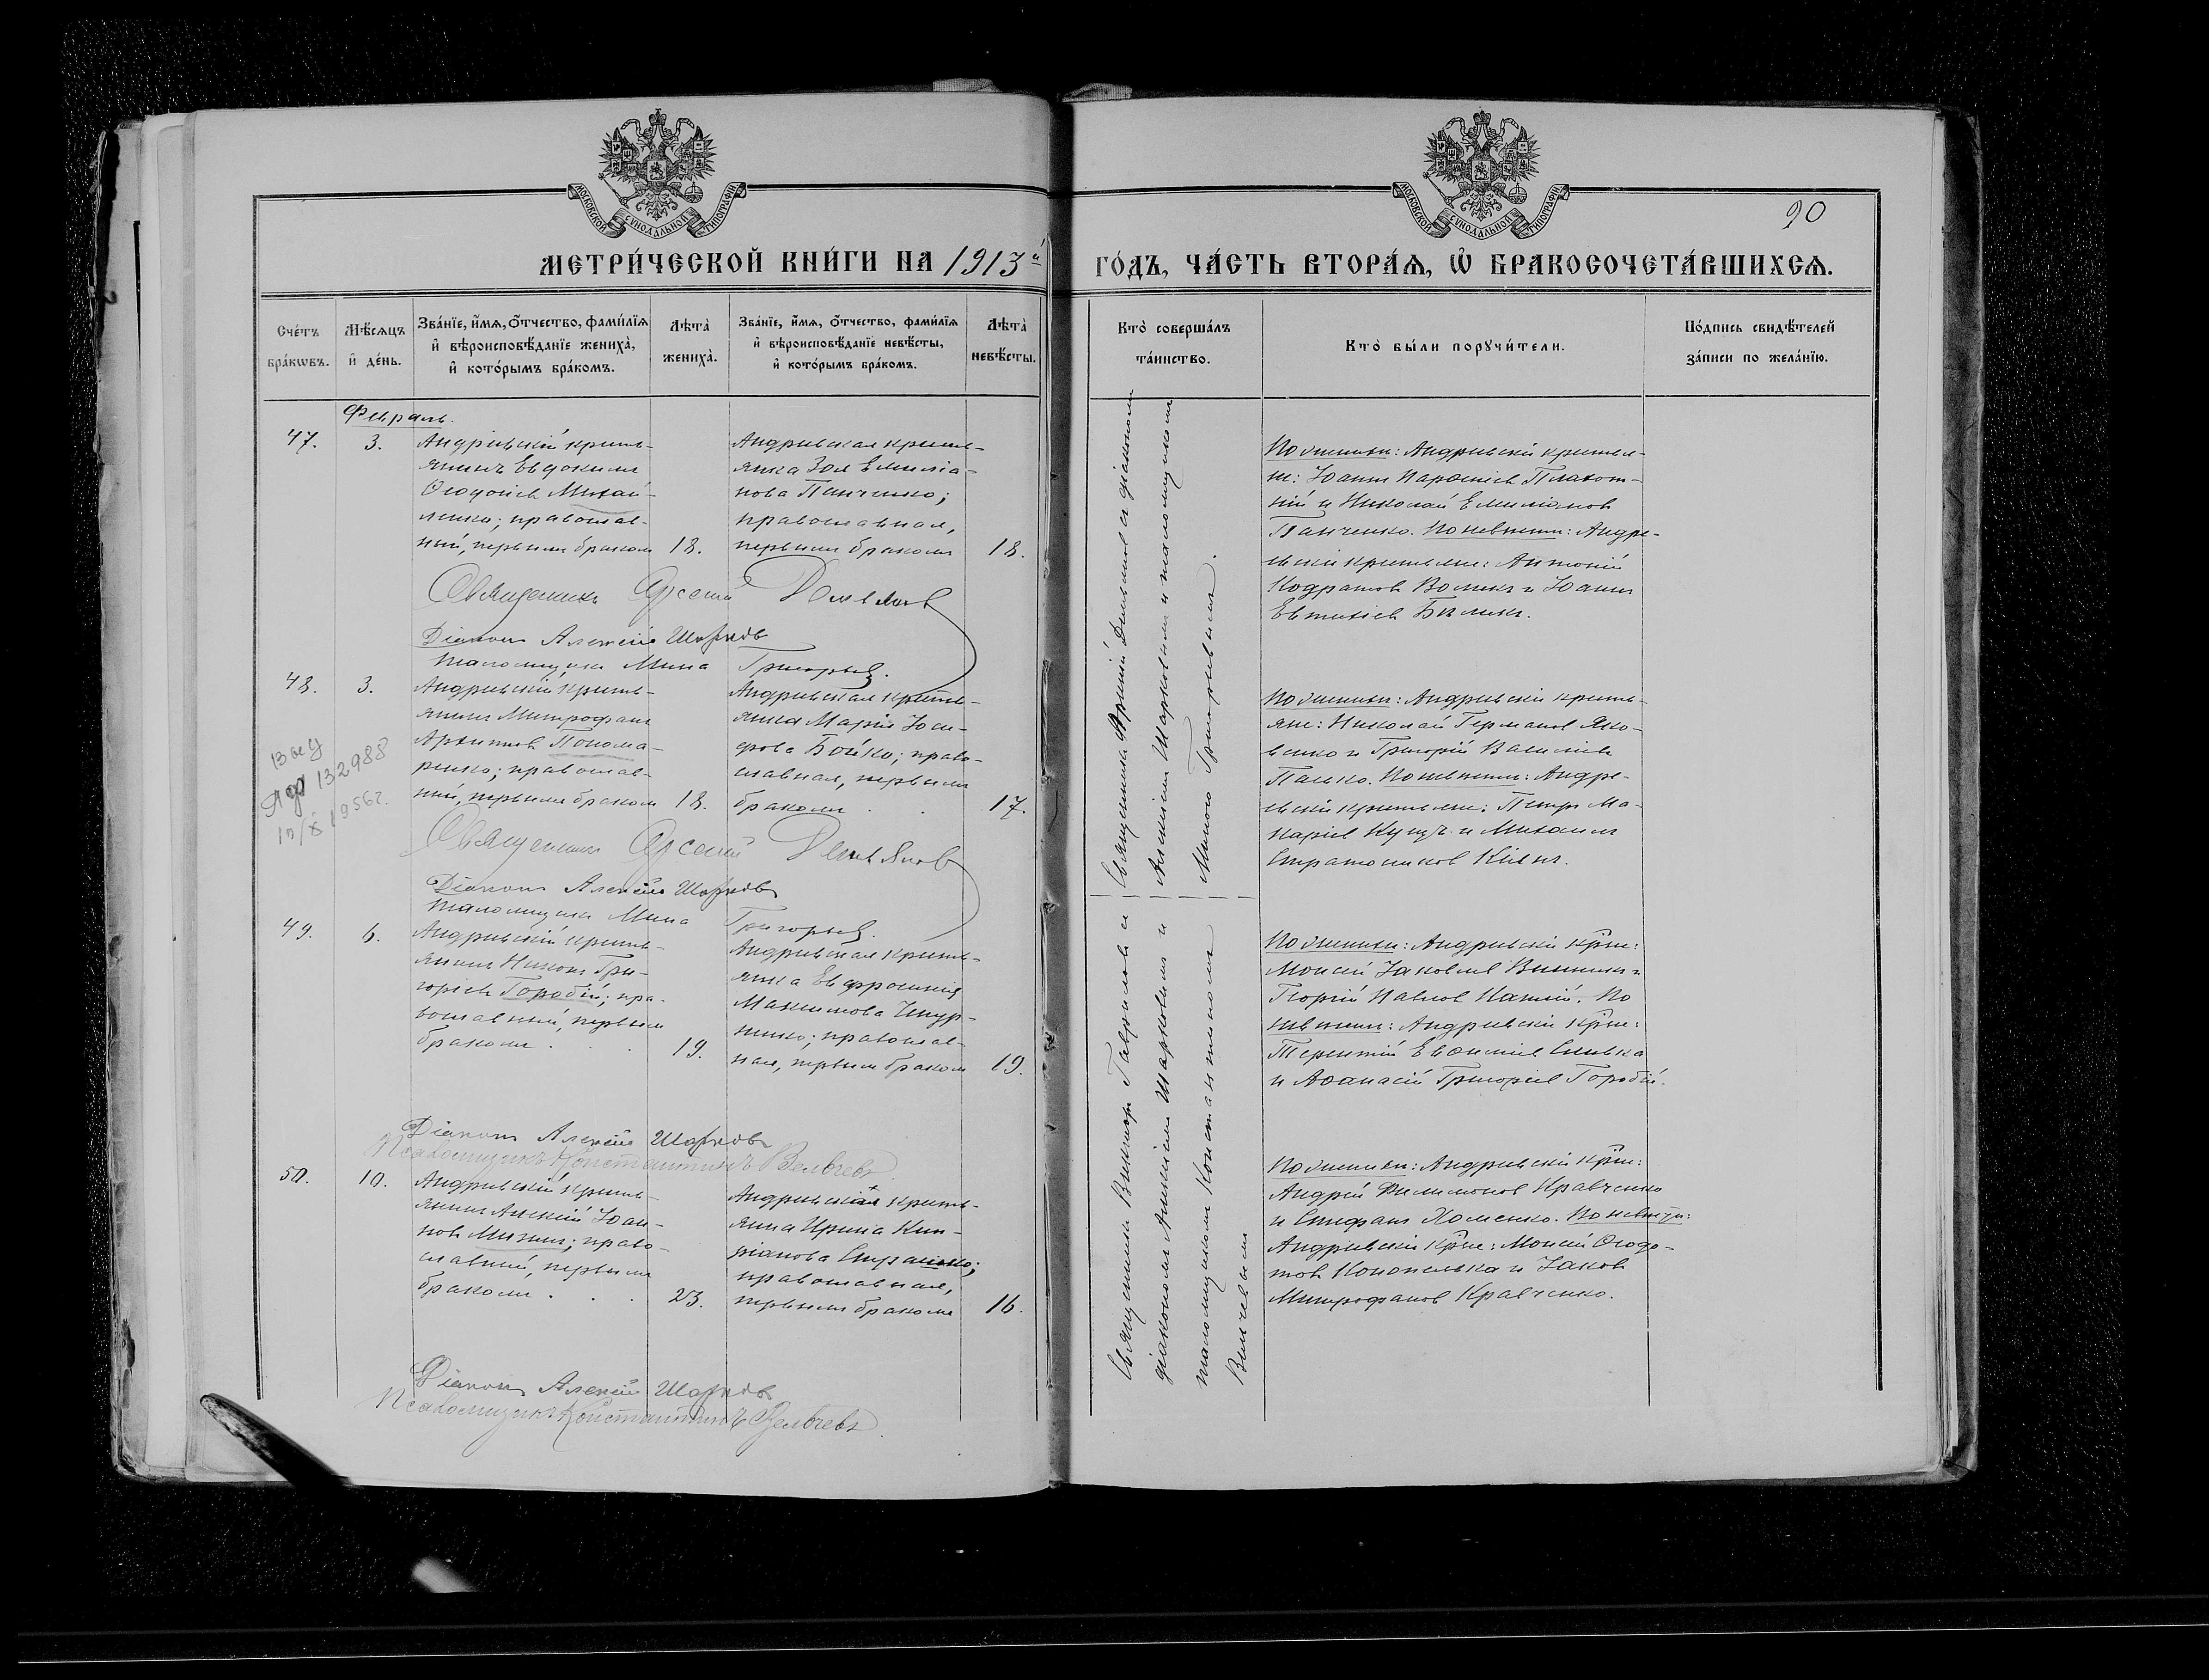 МОСКОВСКОЙ СѴНОДАЛЬНОЙ ТИПОГРАФІИ
МЕТРИ́ЧЕСКОЙ КНИ́ГИ НА 1913й
Сче́тъ бра́кωвъ.
Мѣ́сѧцъ и҆ де́нь.
Зва́нїе, и҆́мѧ, ѻ҆́тчество, фами́лїѧ
и҆ вѣроисповѣ́данїе жениха̀,
и҆ кото́рымъ бра́комъ.
Лѣта̀
жениха̀.
Зва́нїе, и҆́мѧ, ѻ҆́тчество, фами́лїѧ
и҆ вѣроисповѣ́данїе невѣ́сты,
и҆ кото́рымъ бра́комъ.
Лѣта̀
невѣ́сты.
Февраль.
47.
3.
Андреевскій кресть-
янинъ Евдокимъ
Ѳеодотіевъ Михай-
ленко; православ-
ный, первымъ бракомъ
18.
Андреевская кресть-
янка Зоя Емиліа-
нова Панченко;
православная,
первымъ бракомъ
18.
Священникъ Арсеній Демьянов
Діаконъ Алексій Шарков
Псаломщикъ Мина Григорьев.
48.
3.
Андреевскій кресть-
янинъ Митрофанъ
Архиповъ Понома-
ренко; православ-
ный, первымъ бракомъ
18.
Андреевская кресть-
янка Марія Іоси-
фова Бойко; право-
славная, первымъ
бракомъ
17.
132988
1956г.
Священникъ Арсеній Демьянов
Діаконъ Алексій Шарков
Псаломщикъ Мина Григорьев.
49.
6.
Андреевскій кресть-
янинъ Никонъ Гри-
горіевъ Горобій; пра-
вославный, первымъ
бракомъ . . .
19.
Андреевская кресть-
янка Евфросинія
Максимова
православ-
ная, первымъ бракомъ
19.
Діаконъ Алексій Шарков
Псаломщикъ Константинъ Вельчевъ
50.
10.
Андреевскій кресть-
янинъ Алексій Іоан-
новъ Мизинъ; право-
славный, первымъ
бракомъ . . .
23.
Андреевская кресть-
янка Ирина Кип-
ріанова
православная,
первымъ бракомъ
16.
Діаконъ Алексій Шарков
Псаломщикъ Константинъ Вельчевъ.
МОСКОВСКОЙ СѴНОДАЛЬНОЙ ТИПОГРАФІИ
90
ГО́ДЪ, ЧА́СТЬ ВТОРА́Ѧ, Ѽ БРАКОСОЧЕТА́ВШИХСѦ.
Кто̀ соверша́лъ
та́инство.
Кто̀ бы́ли порꙋчи́тели.
По́дпись свидѣ́телей
за́писи по жела́нїю.
Священникъ Арсеній Демьяновъ съ діакономъ
Алексіемъ Шарковымъ и псаломщикомъ
Миною Григорьевымъ.
По женихѣ: Андреевскіе крестья-
не: Іоаннъ
и Николай Емиліановъ
Панченко. По невѣстѣ: Андре-
евскіе крестьяне: Антоній
Кодратовъ Воликъ и Іоаннъ
Евтихіевъ Биликъ.
По женихѣ: Андреевскіе кресть-
яне: Николай Германовъ Яко-
венко и Григорій Василіевъ
Панько. По невѣстѣ: Андре-
евскіе крестьяне: Петръ Ма-
каріевъ Куцъ и Михаилъ
Стратониковъ
Священникъ Викторъ Гавриловъ съ
діакономъ Алексіемъ Шарковымъ и
псаломщикомъ Константиномъ
Вельчевымъ
По женихѣ: Андреевскіе кр҃не:
Моисей Іаковлевъ Вишникъ и
Георгій Павловъ По
невѣстѣ: Андреевскіе кр҃не:
Терентій Евѳиміевъ Сливка
и Аѳанасій Григоріевъ Горобій.
По женихѣ: Андреевскіе кр҃не:
Андрей Филимоновъ Кравченко
и Стефанъ Хоменко. По невѣстѣ:
Андреевскіе кр҃не: Моисей Ѳеодо-
товъ Конопелька и Іаковъ
Митрофановъ Кравченко.